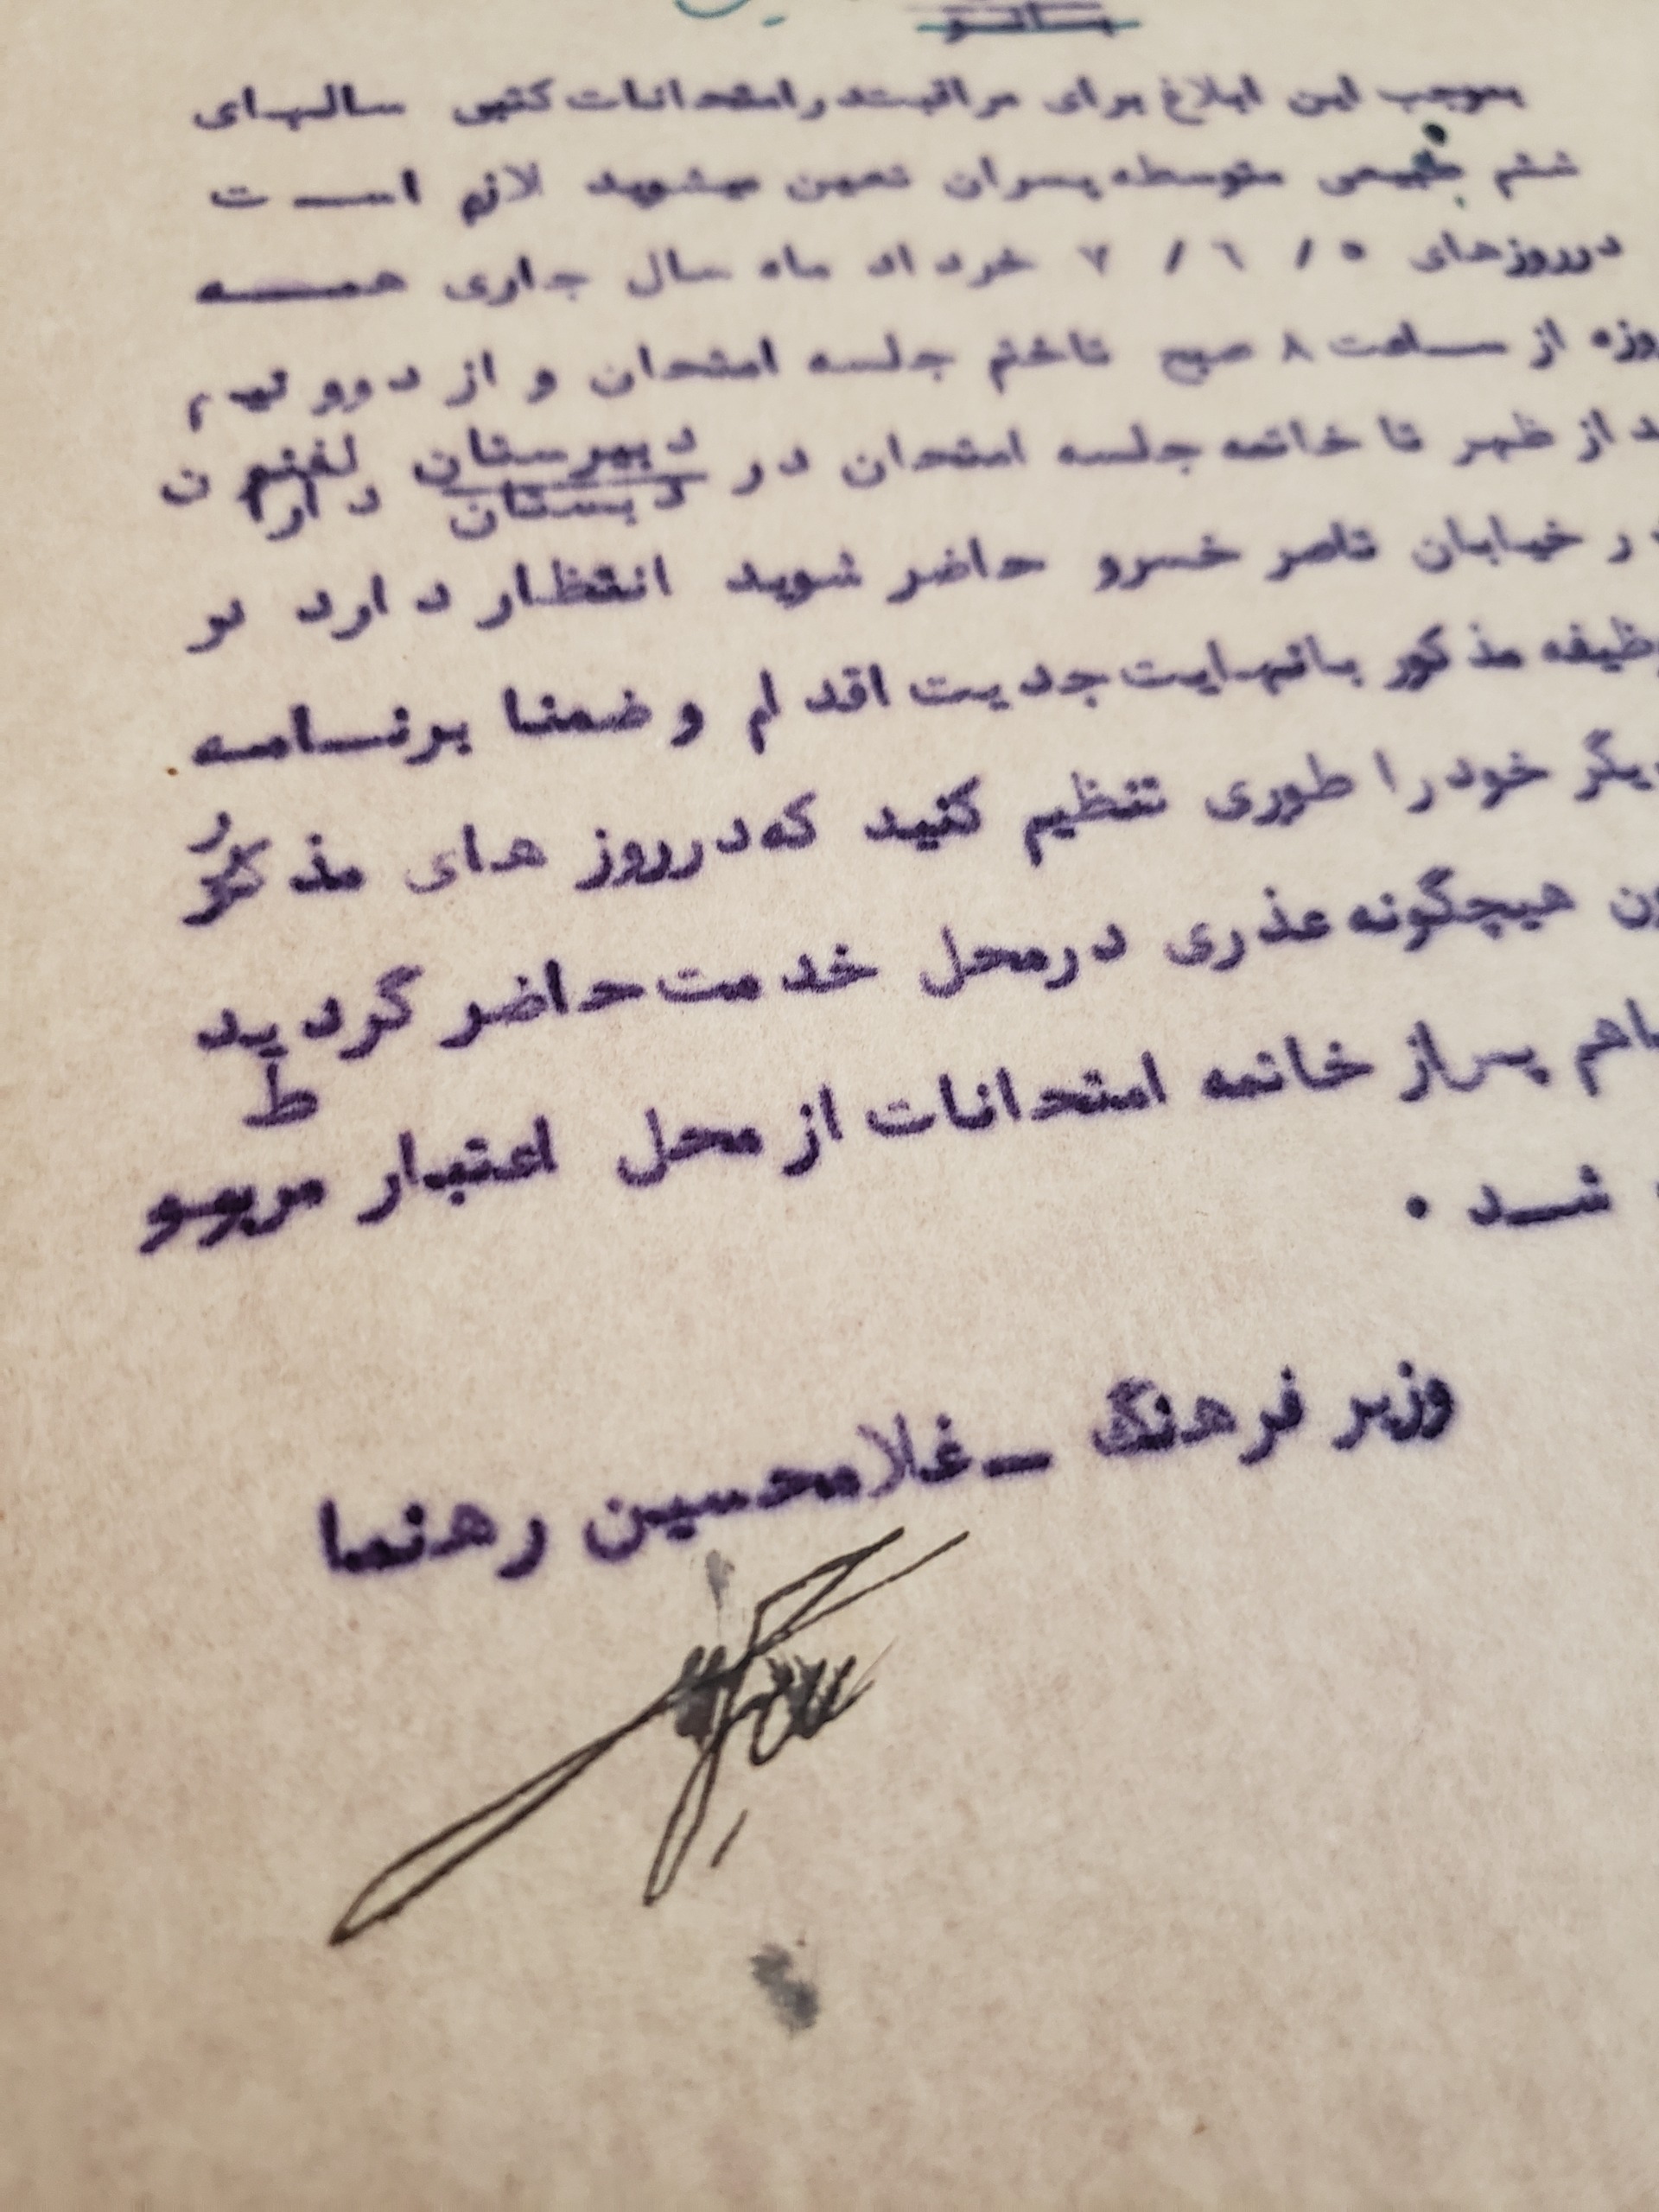 بموجب این ابلاغ برای مراقبت در امتحانات کتبی سالهای
ششم طبیعی متوسطه پسران تعیین میشوید لازم است
در روزهای ۵ / ٦ / ۷ خرداد ماه سال جاری همه
روزه از ساعت ۸ صبح تا ختم جلسه امتحان و از دو و نیم
از ظهر تا خاتمه جلسه امتحان در دبیرستان
دبستان دارا
خیابان ناصر خسرو حاضر شوید انتظار دارد بر
وظیفه مذکور با نهایت جدیت اقدام و ضمنا برنامه
خود را طوری تنظیم کنید که در روز های مذکور
هیچگونه عذری در محل خدمت حاضر گردید
پس از خاتمه امتحانات از محل اعتبار مربوط
شد .
وزیر فرهنگ ـ غلامحسین رهنما